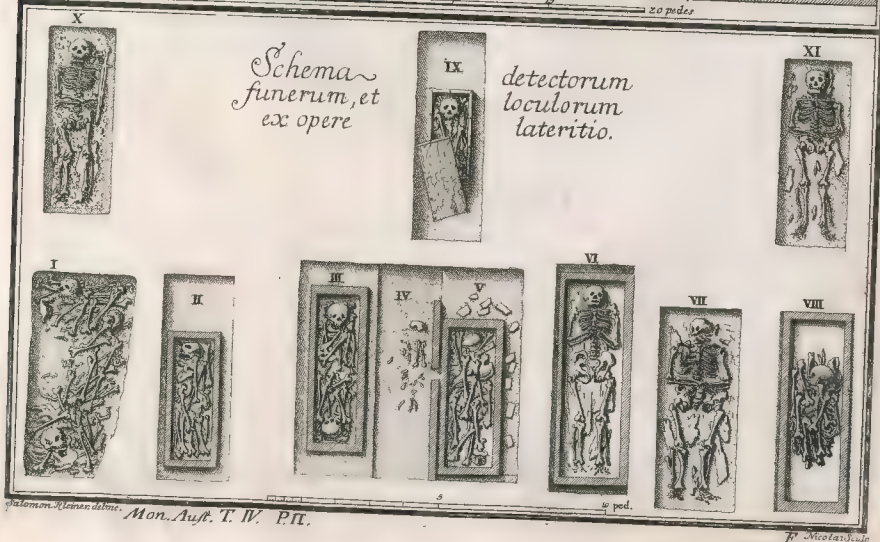 20 pedes
X
Schema
funerum, et
ex opere
IX.
detectorum
loculorum
lateritio.
XI
I
II
III
IV
V
VI
VII
VIII
5
10 ped.
Salomon. Kleiner. delin.
Mon. Aust. T. IV. P. II.
F. Nicolai Sculp